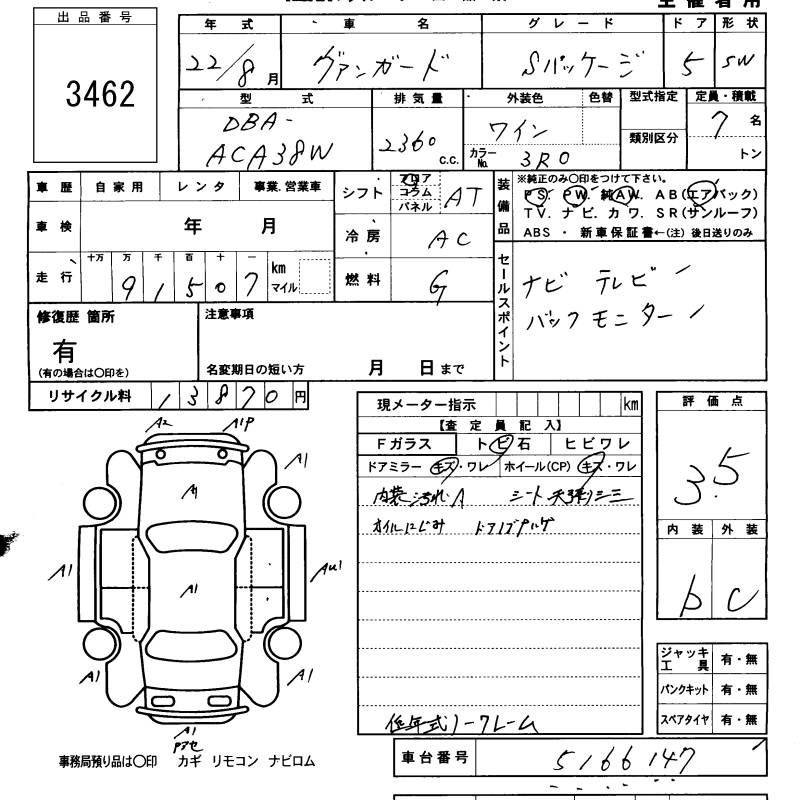 主催者用
出品番号
3462
年式 車名 グレード ドア 形状
22/8月 ヴァンガード Sパッケージ 5 SW
型式 排気量 外装色 色替 型式指定 定員・積載
DBA-
ACA38W 2360 C.C. ワイン 7名
カラーNo. 3R0 類別区分 トン
車歴 自家用 レンタ 事業.営業車
車検 年 月
走行 十万 万 千 百 十 一
91507 km マイル
シフト フロア コラム パネル AT
冷房 AC
燃料 G
装備品 ※純正のみ○印をつけて下さい。
PS. PW. 純AW. AB(エアバック)
TV. ナビ. カワ. SR(サンルーフ)
ABS ・ 新車保証書←(注) 後日送りのみ
セールスポイント
ナビ テレビ
バックモニター
修復歴 箇所
有
(有の場合は○印を)
注意事項
名変期日の短い方 月 日まで
リサイクル料 13870円
現メーター指示 km
【査定員記入】
Fガラス トビ石 ヒビワレ
ドアミラー キズ・ワレ ホイール(CP) キズ・ワレ
内装汚れA シート天張りシミ
オイルにじみ
低年式ノークレーム
評価点
3.5
内装 外装
b C
ジャッキ工具 有・無
パンクキット 有・無
スペアタイヤ 有・無
車台番号 5166147
A2 A1P
A1
A1
A1
A1 AU1
A1 A1
A1
事務局預り品は○印 カギ リモコン ナビロム